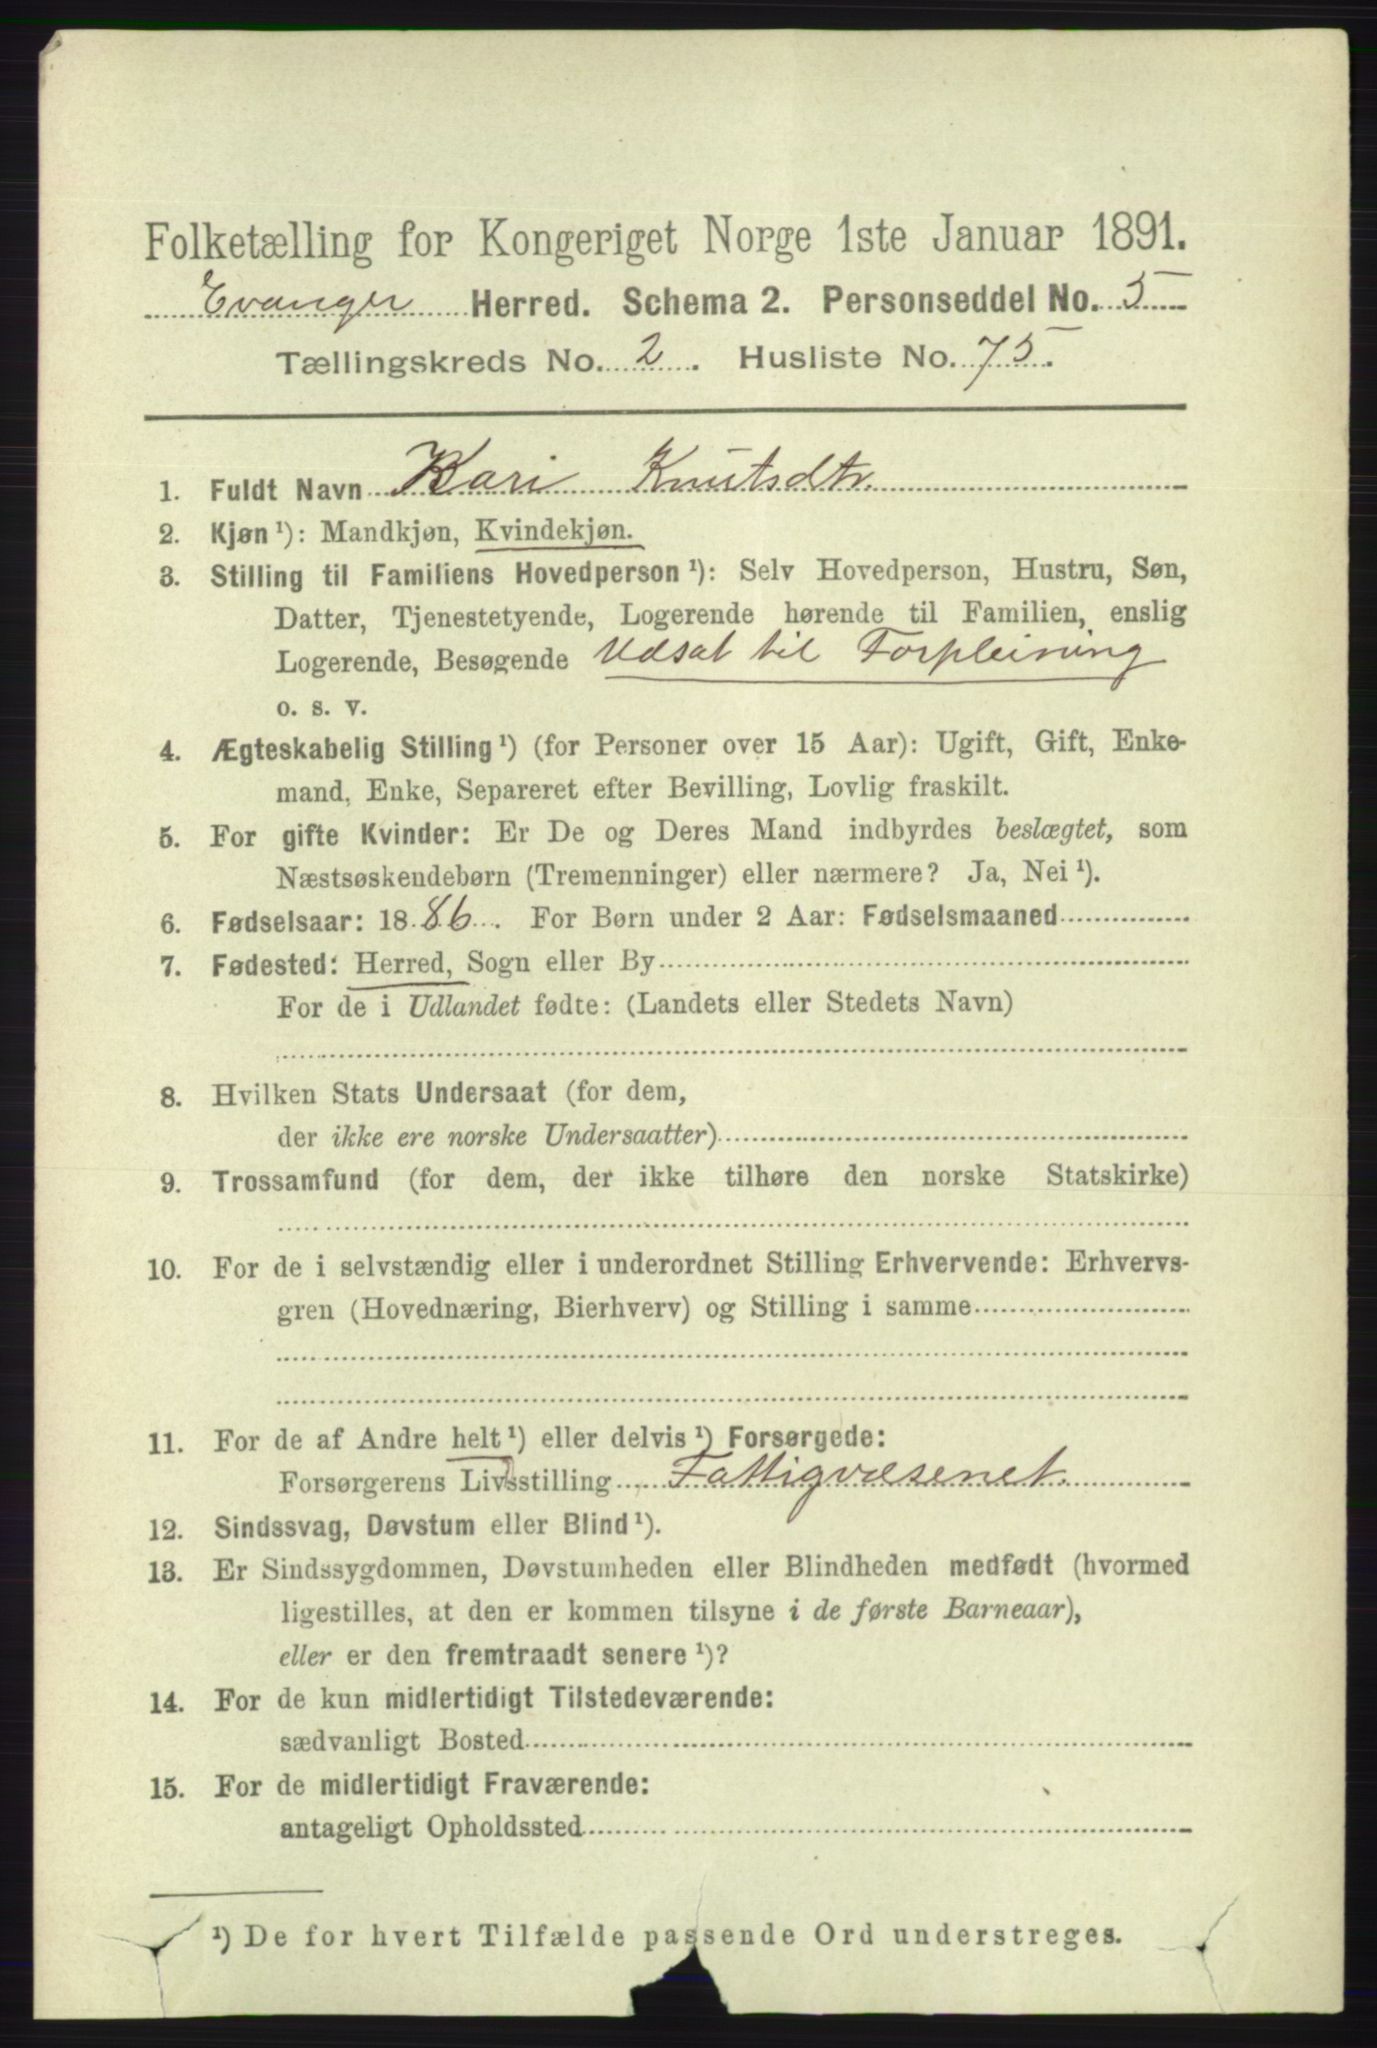 Folketælling for Kongeriget Norge 1ste Januar 1891.
Evanger Herred. Schema 2. Personseddel No. 5
Tællingskreds No. 2. Husliste No. 75.
1. Fuldt Navn Kari Knutsdtr.
2. Kjøn¹): Mandkjøn, Kvindekjøn.
3. Stilling til Familiens Hovedperson¹): Selv Hovedperson, Hustru, Søn,
Datter, Tjenestetyende, Logerende hørende til Familien, enslig
Logerende, Besøgende Udsat til Forpleining
o. s. v.
4. Ægteskabelig Stilling¹) (for Personer over 15 Aar): Ugift, Gift, Enke-
mand, Enke, Separeret efter Bevilling, Lovlig fraskilt.
5. For gifte Kvinder: Er De og Deres Mand indbyrdes beslægtet, som
Næstsøskendebørn (Tremenninger) eller nærmere? Ja, Nei¹).
6. Fødselsaar: 1886. For Børn under 2 Aar: Fødselsmaaned
7. Fødested: Herred, Sogn eller By
For de i Udlandet fødte: (Landets eller Stedets Navn)
8. Hvilken Stats Undersaat (for dem,
der ikke ere norske Undersaatter)
9. Trossamfund (for dem, der ikke tilhøre den norske Statskirke)
10. For de i selvstændig eller i underordnet Stilling Erhvervende: Erhvervs-
gren (Hovednæring, Bierhverv) og Stilling i samme
11. For de af Andre helt¹) eller delvis¹) Forsørgede:
Forsørgerens Livsstilling Fattigvæsenet.
12. Sindssvag, Døvstum eller Blind¹).
13. Er Sindssygdommen, Døvstumheden eller Blindheden medfødt (hvormed
ligestilles, at den er kommen tilsyne i de første Barneaar),
eller er den fremtraadt senere¹)?
14. For de kun midlertidigt Tilstedeværende:
sædvanligt Bosted
15. For de midlertidigt Fraværende:
antageligt Opholdssted
¹) De for hvert Tilfælde passende Ord understreges.